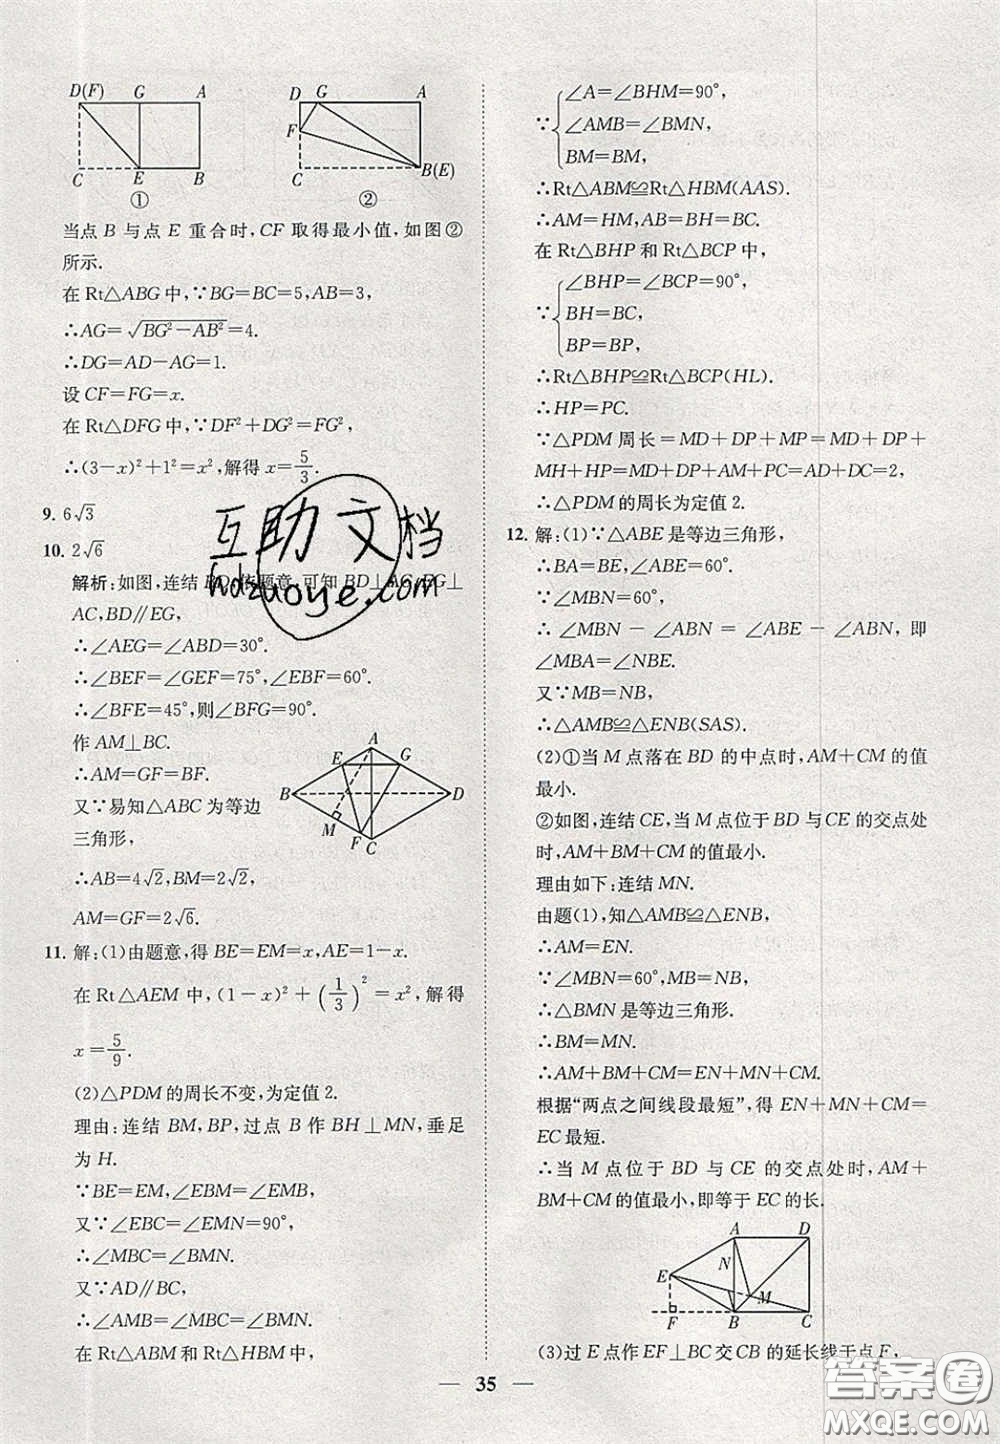 D(F) G A
C E B
①
D G A
F
C B(E)
②
当点 B 与点 E 重合时,CF 取得最小值,如图②
所示.
在 Rt△ABG 中,∵BG=BC=5,AB=3,
∴AG=√(BG²-AB²)=4.
∴DG=AD-AG=1.
设 CF=FG=x.
在 Rt△DFG 中,∵DF²+DG²=FG²,
∴(3-x)²+1²=x²,解得 x=5/3.
9. 6√3
10. 2√6
解析:如图,连结 BD,依题意,可知 BD⊥AC,EG⊥
AC,BD∥EG,
∴∠AEG=∠ABD=30°.
∴∠BEF=∠GEF=75°,∠EBF=60°.
∴∠BFE=45°,则∠BFG=90°.
作 AM⊥BC.
∴AM=GF=BF.
又∵易知△ABC 为等边
三角形,
∴AB=4√2,BM=2√2,
AM=GF=2√6.
A
E G
B D
M F C
11. 解:(1)由题意,得 BE=EM=x,AE=1-x.
在 Rt△AEM 中,(1-x)²+(1/3)²=x²,解得
x=5/9.
(2)△PDM 的周长不变,为定值 2.
理由:连结 BM,BP,过点 B 作 BH⊥MN,垂足
为 H.
∵BE=EM,∠EBM=∠EMB,
又∵∠EBC=∠EMN=90°,
∴∠MBC=∠BMN.
又∵AD∥BC,
∴∠AMB=∠MBC=∠BMN.
在 Rt△ABM 和 Rt△HBM 中,
∵{∠A=∠BHM=90°,
∠AMB=∠BMN,
BM=BM,
∴Rt△ABM≌Rt△HBM(AAS).
∴AM=HM,AB=BH=BC.
在 Rt△BHP 和 Rt△BCP 中,
∵{∠BHP=∠BCP=90°,
BH=BC,
BP=BP,
∴Rt△BHP≌Rt△BCP(HL).
∴HP=PC.
∵△PDM 周长=MD+DP+MP=MD+DP+
MH+HP=MD+DP+AM+PC=AD+DC=2,
∴△PDM 的周长为定值 2.
12. 解:(1)∵△ABE 是等边三角形,
∴BA=BE,∠ABE=60°.
∵∠MBN=60°,
∴∠MBN-∠ABN=∠ABE-∠ABN,即
∠MBA=∠NBE.
又∵MB=NB,
∴△AMB≌△ENB(SAS).
(2)①当 M 点落在 BD 的中点时,AM+CM 的值
最小.
②如图,连结 CE,当 M 点位于 BD 与 CE 的交点处
时,AM+BM+CM 的值最小.
理由如下:连结 MN.
由题(1),知△AMB≌△ENB,
∴AM=EN.
∵∠MBN=60°,MB=NB,
∴△BMN 是等边三角形.
∴BM=MN.
∴AM+BM+CM=EN+MN+CM.
根据“两点之间线段最短”,得 EN+MN+CM=
EC 最短.
∴当 M 点位于 BD 与 CE 的交点处时,AM+
BM+CM 的值最小,即等于 EC 的长.
A D
N
E M
F B C
(3)过 E 点作 EF⊥BC 交 CB 的延长线于点 F,
— 35 —
互助文档
hdzuoye.com
答案圈
MXQE.COM